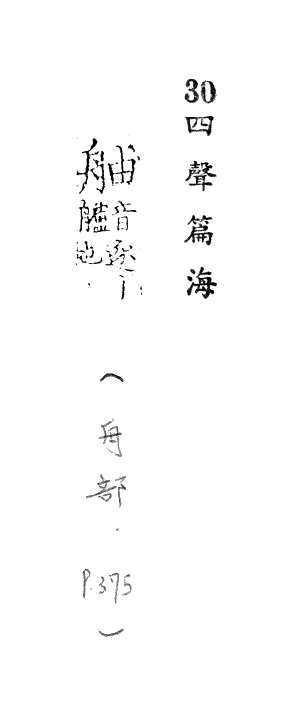 30四聲篇海
舳音逐艫也
（舟部．P.375）